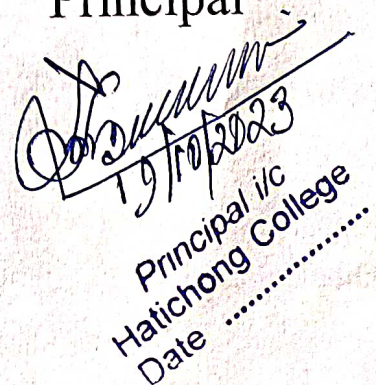 Principal
19/10/2023
Principal i/c
Hatichong College
Date ....................